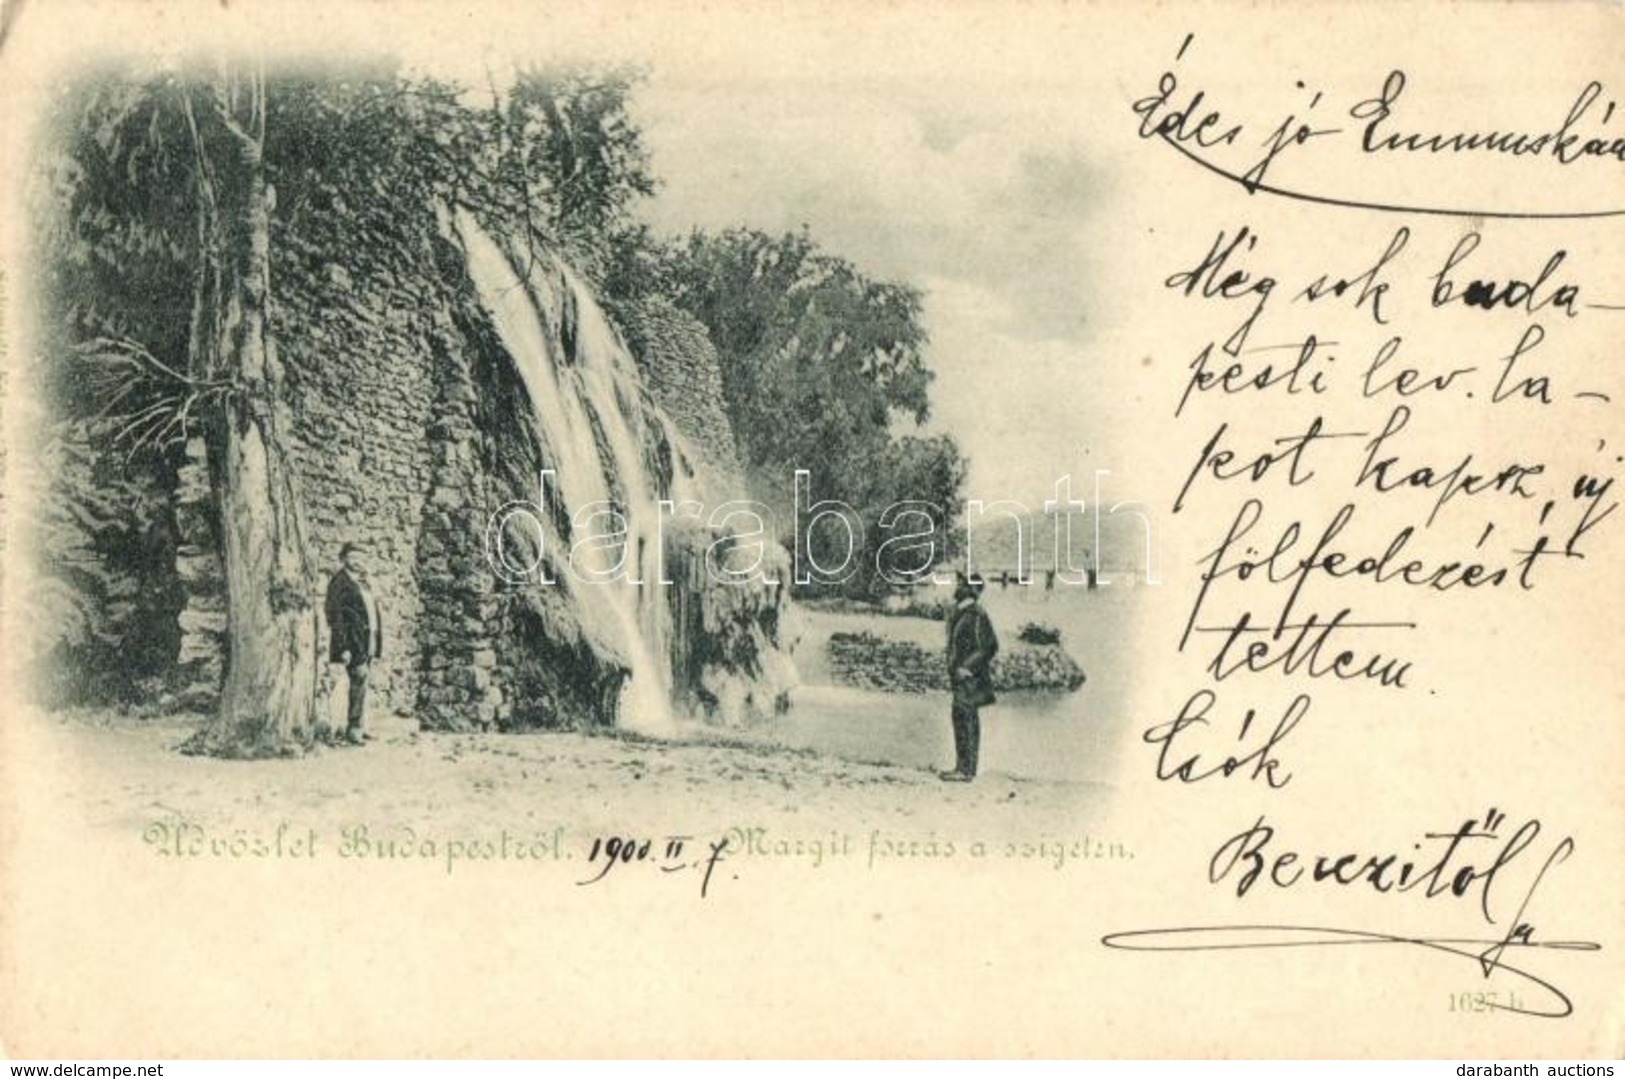 Édes jó Emmuskám
Még sok buda-
pesti lev. la-
pot kapsz, új
fölfedezést
tettem.
Csók
Berczitől
darabanth
Üdvözlet Budapestről. 1900. II. 7. Margit forrás a szigeten.
1627 b
Store: darabanth-auctions.delcampe.net
darabanth auctions